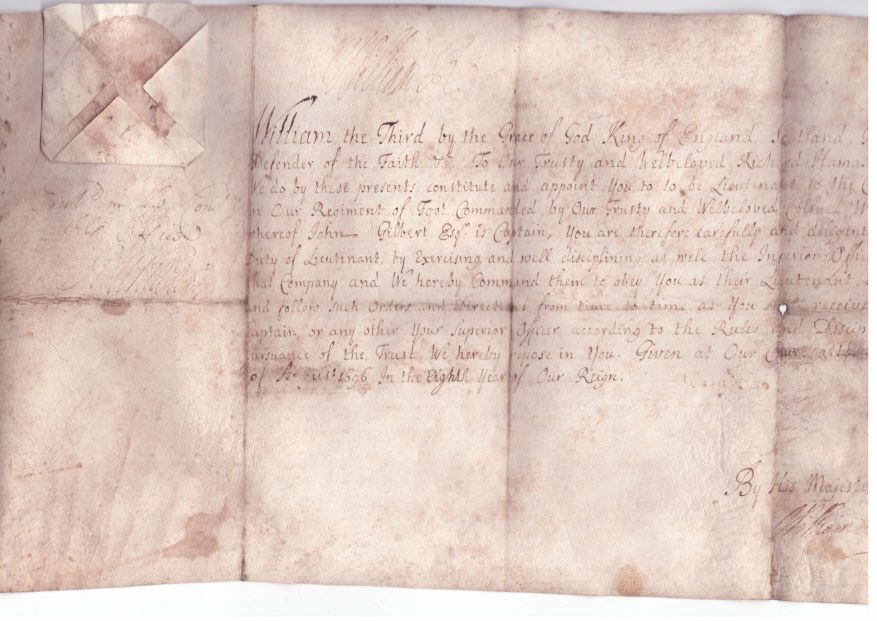 William R
William the Third by the Grace of God King of England Scotland
Defender of the Faith &c. To Our Trusty and Welbeloved Richard
We do by these presents constitute and appoint You to to be Lieutenant to the
in Our Regiment of Foot Commanded by Our Trusty and Welbeloved
whereof John Gilbert Esqr. is Captain, You are therefore carefully and diligent
Duty of Lieutenant, by Exercising and well disciplining as well the Inferior Offic
that Company and We hereby Command them to obey You as their Lieutenant
and follow such Orders and Directions from time to time as You shall receive
Captain, or any other Your Superior Officer according to the Rules and Discip
pursuance of the Trust We hereby repose in You. Given at Our Court att
of August 1696 In the Eighth Year of Our Reign.
By His Majest